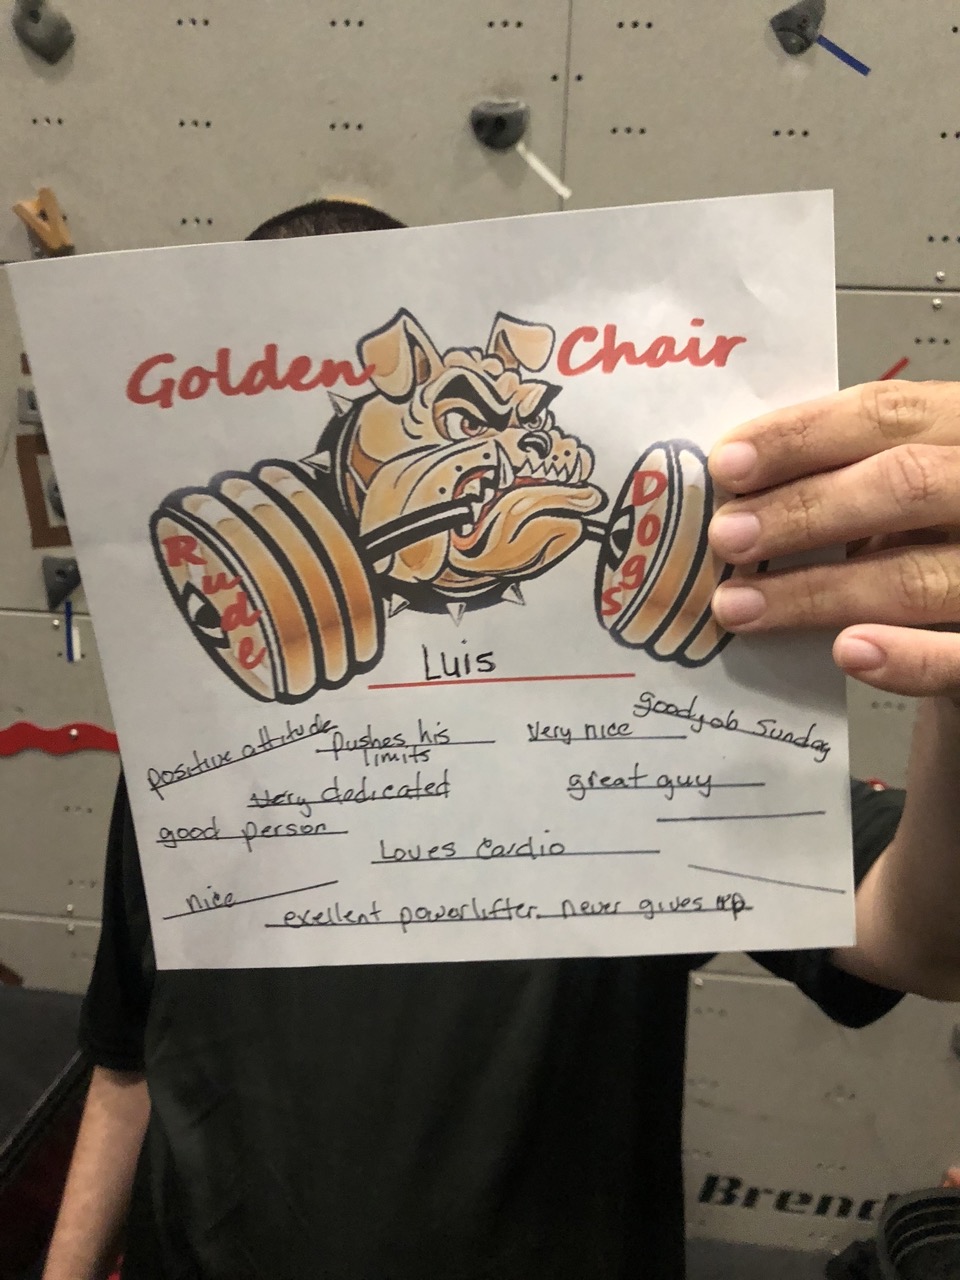 Golden Chair
Rude
Dogs
Luis
positive attitude
pushes his
limits
Very nice
good job Sunday
Very dedicated
great guy
good person
Loves Cardio
nice
exellent powerlifter. never gives up
Brend